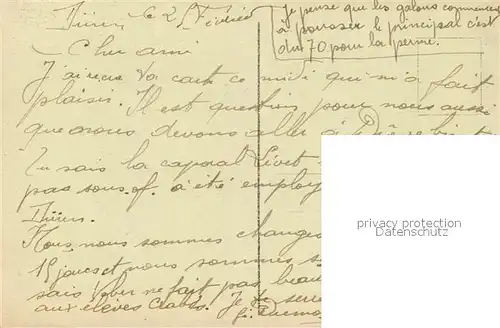 Düren le 2 Février
Je pense que les galons commencent
à pousser le principal c'est
du 70 pour la perme.
Cher ami
J'ai reçu ta carte ce midi qui m'a fait
plaisir. Il est question pour nous aussi
que nous devons aller à
Tu sais la caporal Livet
pas sous-of. a été employ
Düren.
Nous nous sommes changés
15 jours et nous sommes
sais ne fait pas beau
aux élèves Je te serre
privacy protection